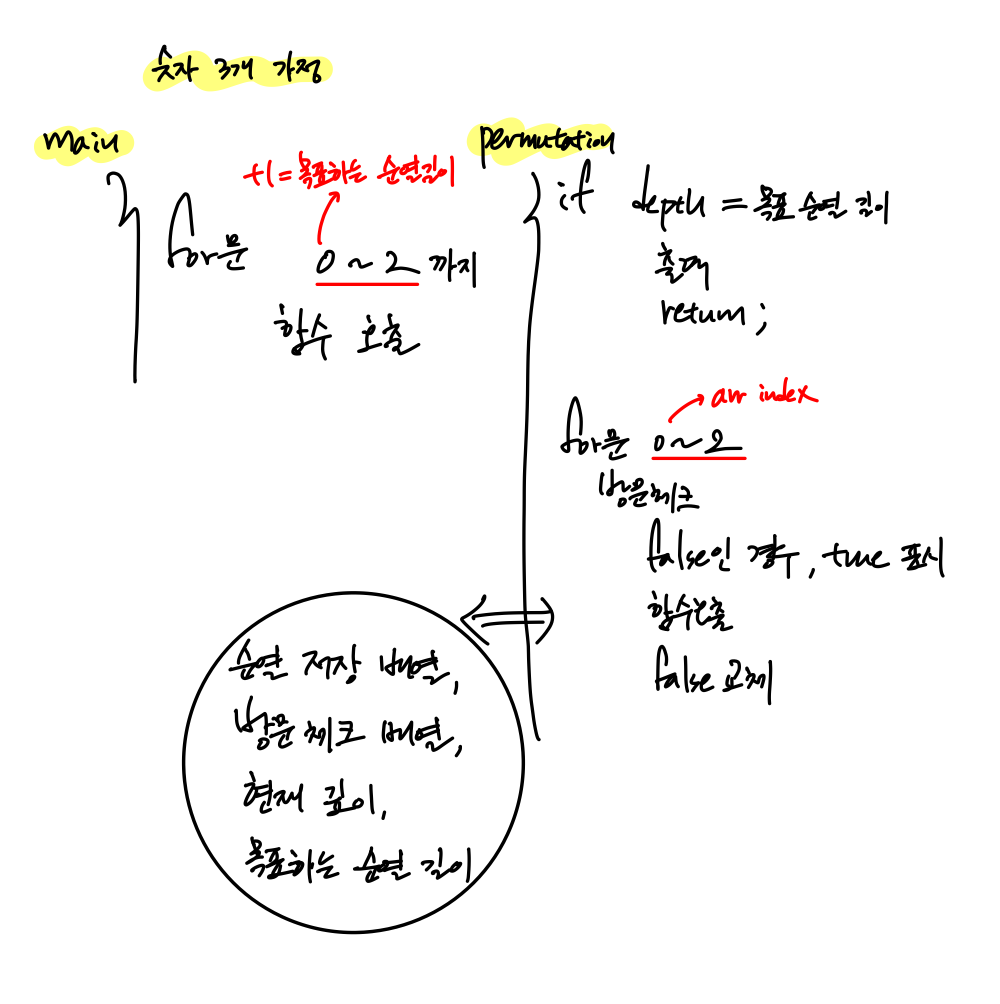 숫자 3개 가정
main
+1=목표하는 순열길이
for문
0~2 까지
함수 호출
permutation
if depth = 목표 순열 길이
출력
return;
arr index
for문 0~2
방문체크
false인 경우, true 표시
함수호출
false 교체
순열 저장 배열,
방문 체크 배열,
현재 깊이,
목표하는 순열 길이